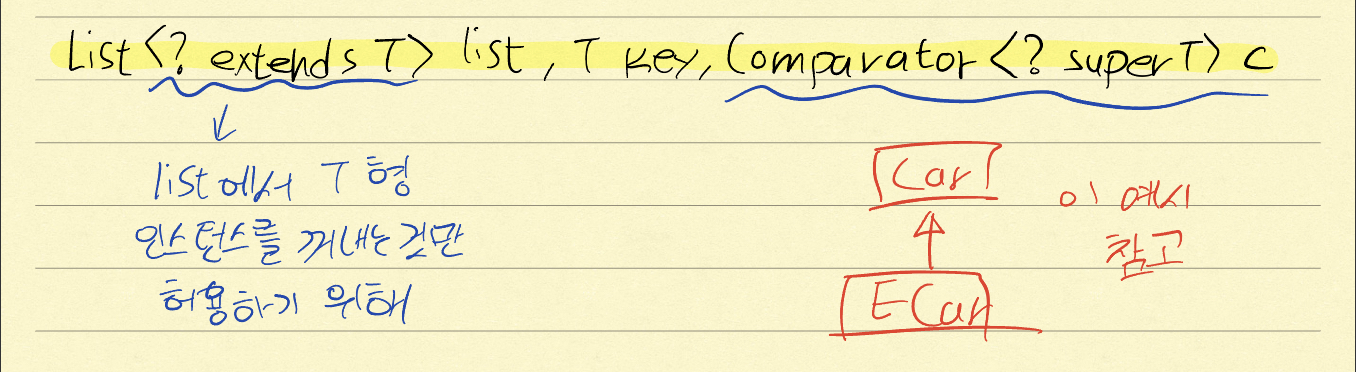 List <? extends T> list, T key, Comparator <? super T> c
list에서 T형
인스턴스를 꺼내는것만
허용하기 위해
Car
ECar
이 예시
참고